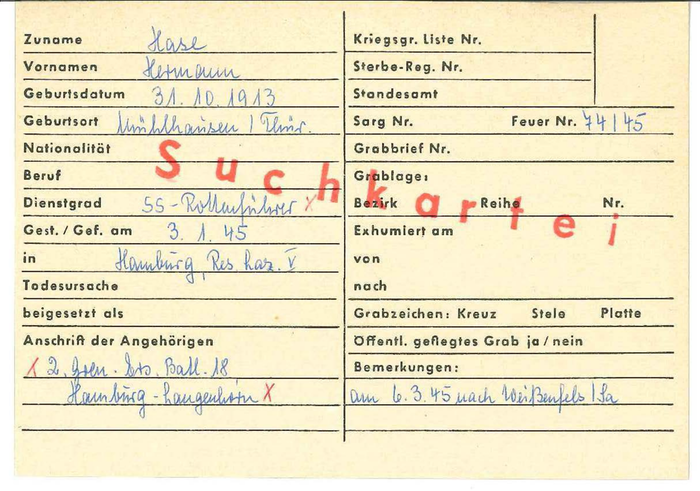 Zuname Hase
Vornamen Hermann
Geburtsdatum 31. 10. 1913
Geburtsort Mühlhausen / Thür.
Nationalität
Beruf
Dienstgrad SS-Rottenführer x
Gest. / Gef. am 3. 1. 45
in Hamburg, Res. Laz. V
Todesursache
beigesetzt als
Anschrift der Angehörigen
x 2. Gren. Ers. Batl. 18
Hamburg-Langenhorn x
Suchkartei
Kriegsgr. Liste Nr.
Sterbe-Reg. Nr.
Standesamt
Sarg Nr. Feuer Nr. 74/45
Grabbrief Nr.
Grablage:
Bezirk Reihe Nr.
Exhumiert am
von
nach
Grabzeichen: Kreuz Stele Platte
Öffentl. geflegtes Grab ja / nein
Bemerkungen:
am 6. 3. 45 nach Weißenfels / Sa